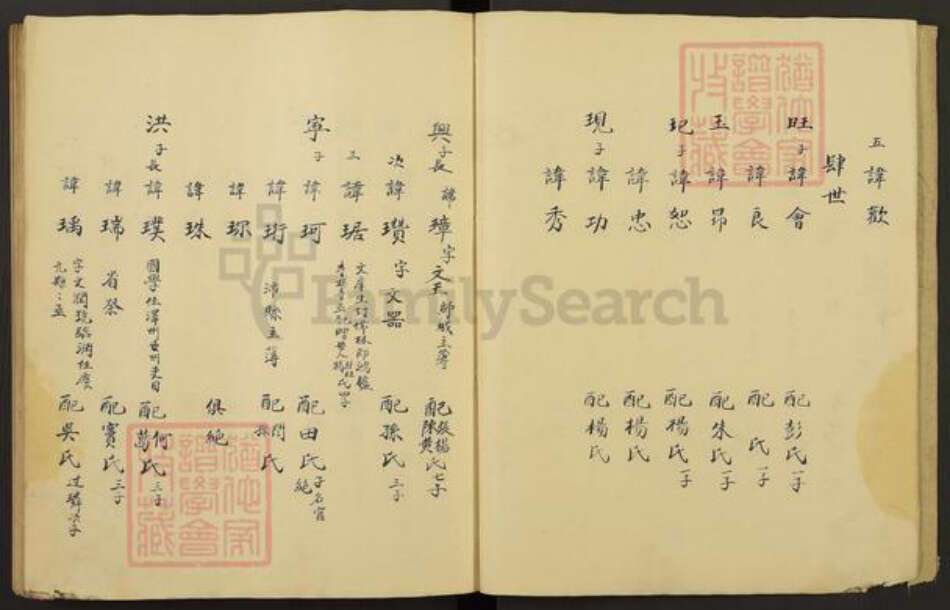 五 諱歡
肆世
旺子諱會 配彭氏一子
諱良 配 氏一子
玉 諱昂 配朱氏一子
玘子諱恕 配楊氏一子
諱忠 配楊氏
現子諱功 配楊氏
諱秀
興子長諱璋 字文玉 師城主簿 配張楊陳黄氏七子
次諱瓚 字文器 配孫氏三子
三諱琚 文庠生
寧子諱珂 配田氏子名官絕
諱珩 沛縣主簿 配閆孫氏
諱琢
諱珠 俱絕
洪子長諱璞 國學任澤州 州吏目 配何葛氏三子
諱瑞 省祭 配竇氏三子
諱瑀 字文潤 配吳氏
FamilySearch